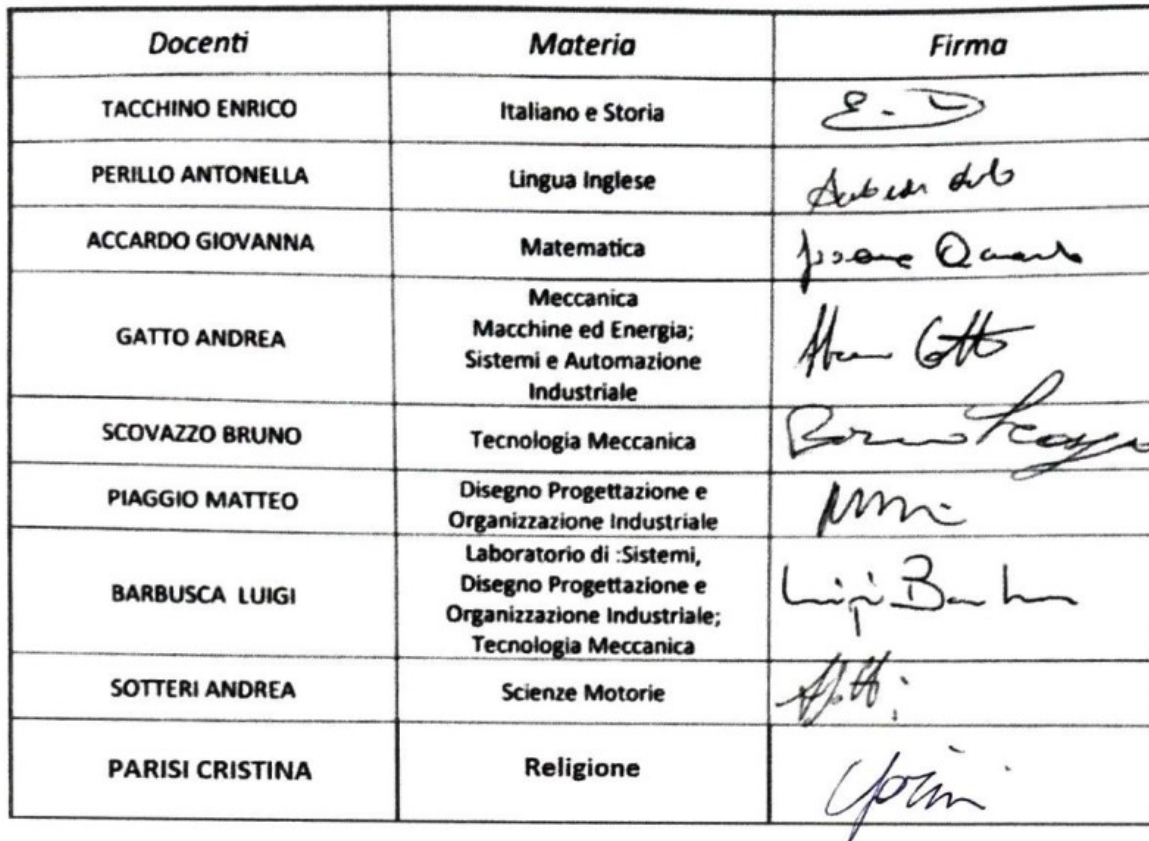 Docenti Materia Firma
TACCHINO ENRICO Italiano e Storia
PERILLO ANTONELLA Lingua Inglese
ACCARDO GIOVANNA Matematica
Meccanica
GATTO ANDREA Macchine ed Energia;
Sistemi e Automazione
Industriale
SCOVAZZO BRUNO Tecnologia Meccanica
PIAGGIO MATTEO Disegno Progettazione e
Organizzazione Industriale
Laboratorio di :Sistemi,
BARBUSCA LUIGI Disegno Progettazione e
Organizzazione Industriale;
Tecnologia Meccanica
Luigi
SOTTERI ANDREA Scienze Motorie
PARISI CRISTINA Religione